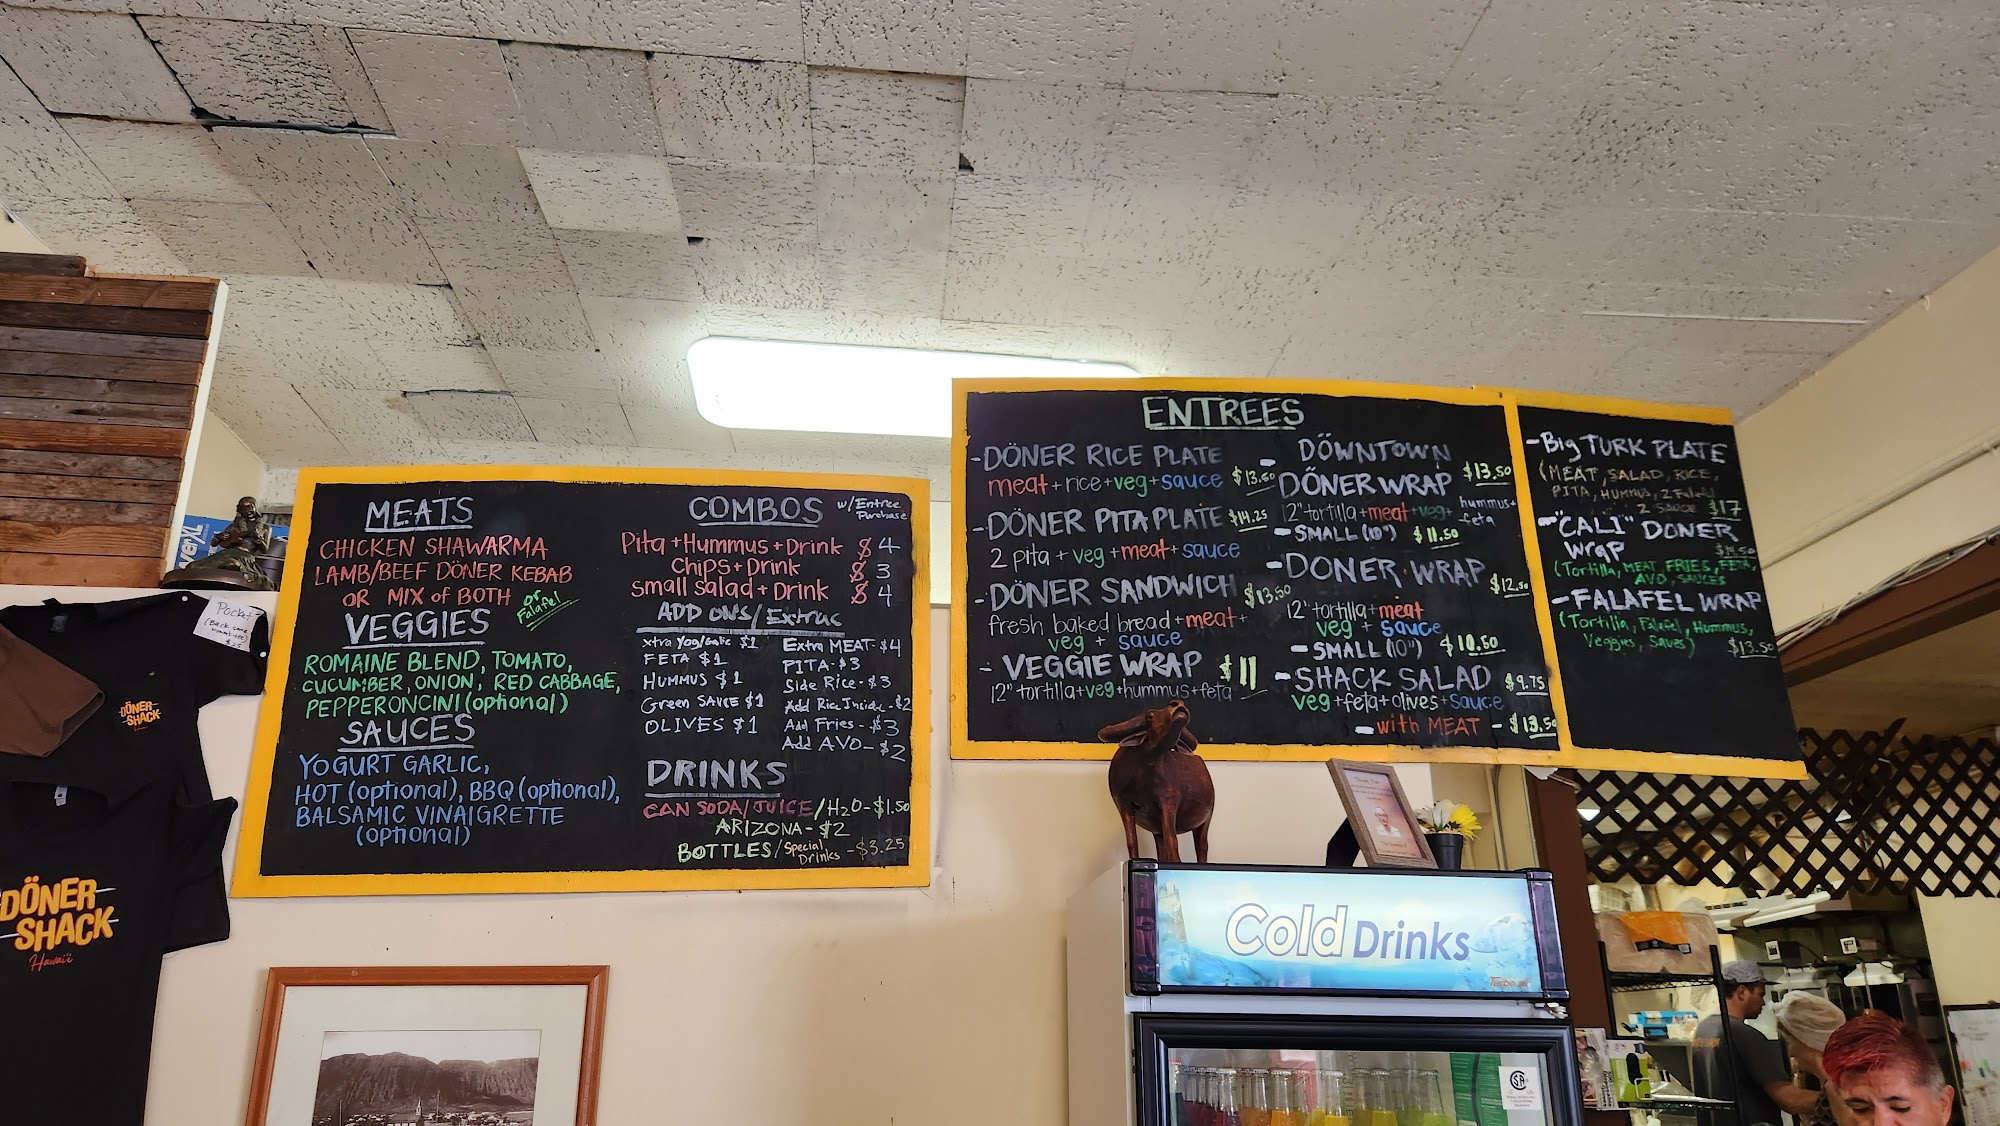 MEATS
CHICKEN SHAWARMA
LAMB/BEEF DÖNER KEBAB
OR MIX of BOTH
or Falafel
VEGGIES
ROMAINE BLEND, TOMATO,
CUCUMBER, ONION, RED CABBAGE,
PEPPERONCINI (optional)
SAUCES
YOGURT GARLIC,
HOT (optional), BBQ (optional),
BALSAMIC VINAIGRETTE
(optional)
COMBOS w/Entree Purchase
Pita + Hummus + Drink $4
Chips + Drink $3
Small salad + Drink $4
ADD ONS/Extras
xtra Yog/Garlic $1
FETA $1
HUMMUS $1
Green SAUCE $1
OLIVES $1
Extra MEAT - $4
PITA - $3
Side Rice - $3
Add Rice Inside - $2
Add Fries - $3
Add AVO - $2
DRINKS
CAN SODA/JUICE/H2O - $1.50
ARIZONA - $2
BOTTLES/Special Drinks - $3.25
ENTREES
- DÖNER RICE PLATE
meat + rice + veg + sauce $13.50
- DÖNER PITA PLATE $14.25
2 pita + veg + meat + sauce
- DÖNER SANDWICH $13.50
fresh baked bread + meat +
veg + sauce
- VEGGIE WRAP $11
12" tortilla + veg + hummus + feta
- DÖWNTOWN
DÖNER WRAP $13.50
12" tortilla + meat + veg + hummus + feta
- SMALL (10") $11.50
- DONER WRAP $12.50
12" tortilla + meat
veg + sauce
- SMALL (10") $10.50
- SHACK SALAD $9.75
veg + feta + olives + sauce
- with MEAT - $13.50
- Big TURK PLATE
(MEAT, SALAD, RICE,
PITA, HUMMUS, 2 Falafel
2 SAUCE $17
- "CALI" DONER
Wrap $14.50
(Tortilla, MEAT, FRIES, FETA,
AVO, SAUCES
- FALAFEL WRAP
(Tortilla, Falafel, Hummus,
Veggies, Sauces) $13.50
Pocket
(Back same
DÖNER
SHACK
DÖNER
SHACK
Hawai'i
Cold Drinks